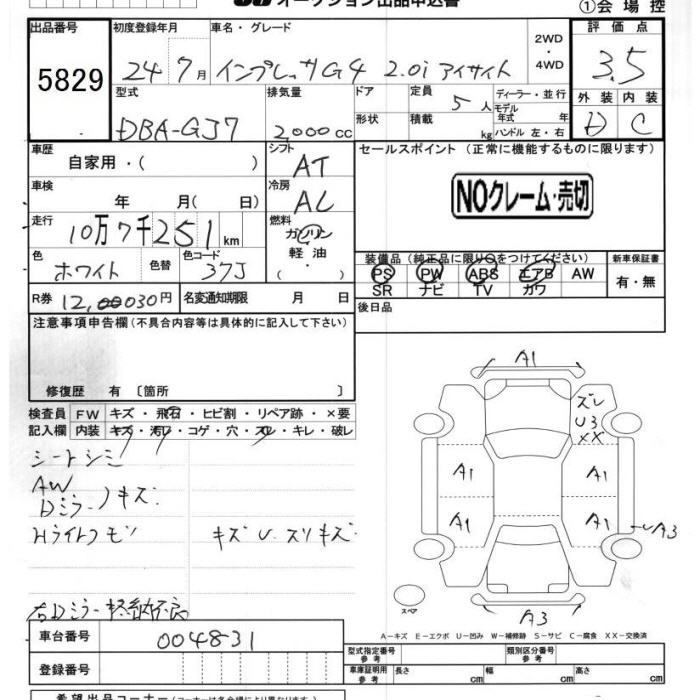 オークション出品申込書
①会場控
出品番号
5829
初度登録年月
24 7月
車名・グレード
インプレッサG4 2.0i アイサイト
2WD
・
4WD
評価点
3.5
型式
DBA-GJ7
排気量
2,000cc
ドア
形状
定員
5人
積載
kg
ディーラー・並行
モデル
年式 年
ハンドル 左・右
外装 内装
D C
車歴
自家用・( )
シフト
AT
セールスポイント (正常に機能するものに限ります)
NOクレーム・売切
車検
年 月( 日)
冷房
AC
走行
10万7千251km
燃料
ガソリン
軽油
( ・ )
色
ホワイト
色替
色コード
37J
装備品(純正品に限り○をつけてください)
新車保証書
PS PW ABS エアB AW
SR ナビ TV カワ
有・無
R券
12,030円
名変通知期限 月 日
後日品
注意事項申告欄(不具合内容等は具体的に記入して下さい)
修復歴 有 〔箇所 〕
検査員 FW キズ・飛石・ヒビ割・リペア跡・×要
記入欄 内装 キズ・汚レ・コゲ・穴・スレ・キレ・破レ
シートシミ
AW
Dミラー キズ
Hライトクモリ
キズ U スリキズ
右Dミラー格納不良
A1
ズレ
U3
XX
A1
A1
A1
A1
A3
A3
スペア
A-キズ E-エクボ U-凹み W-補修跡 S-サビ C-腐食 XX-交換済
車台番号
004831
登録番号
型式指定番号
参考
類別区分番号
参考
車庫証明用
参考
長さ cm 幅 cm 高さ cm
希望出品コーナー